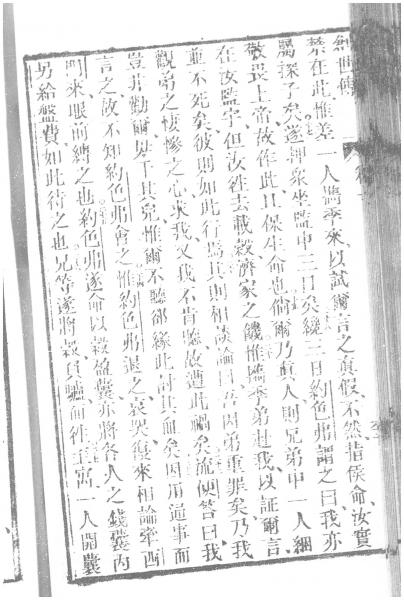 創世傳
禁在此惟差一人將季來以試爾言之真假不然指侯命汝實
屬探子矣遂押衆坐監中三日矣纔三日約色弗謂之曰我亦
敬畏上帝故作此且保生命也倘爾乃真人則兄弟中一人綑
在汝監牢但汝徃去載穀濟家之饑惟攜季弟赴我以証爾言
並不死矣彼則如此行焉其則相談論曰吾因弟重罪矣乃我
觀弟之悽慘之心求我又我不肯聽故遭此禍矣流便答曰我
豈非勸爾毋干其兒惟爾不聽卻緣此討其血矣因用通事而
言之故不知約色弗會之惟約色弗退之哀哭復來相論牽西
門來眼前縛之也約色弗遂命以穀盈囊亦將各人之錢囊內
另給盤費如此待之也兄等遂將穀負驢而徃至寓一人開囊